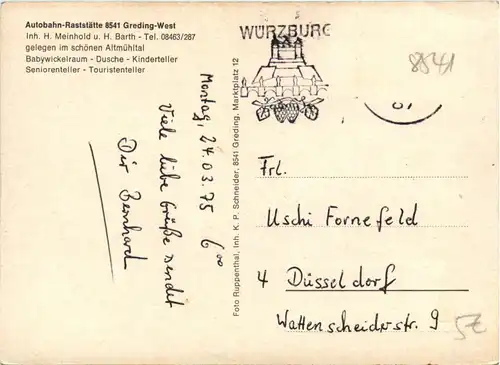 Autobahn-Raststätte 8541 Greding-West
Inh. H. Meinhold u. H. Barth - Tel. 08463/287
gelegen im schönen Altmühltal
Babywickelraum - Dusche - Kinderteller
Seniorenteller - Touristenteller
Montag, 24.03.75 6⁰⁰
Viele liebe Grüße sendet
Dir Bernhard
Foto Ruppenthal, Inh. K. P. Schneider, 8541 Greding, Marktplatz 12
WÜRZBURG
8541
01
Frl.
Uschi Fornefeld
4 Düsseldorf
Wattenscheidrstr. 9